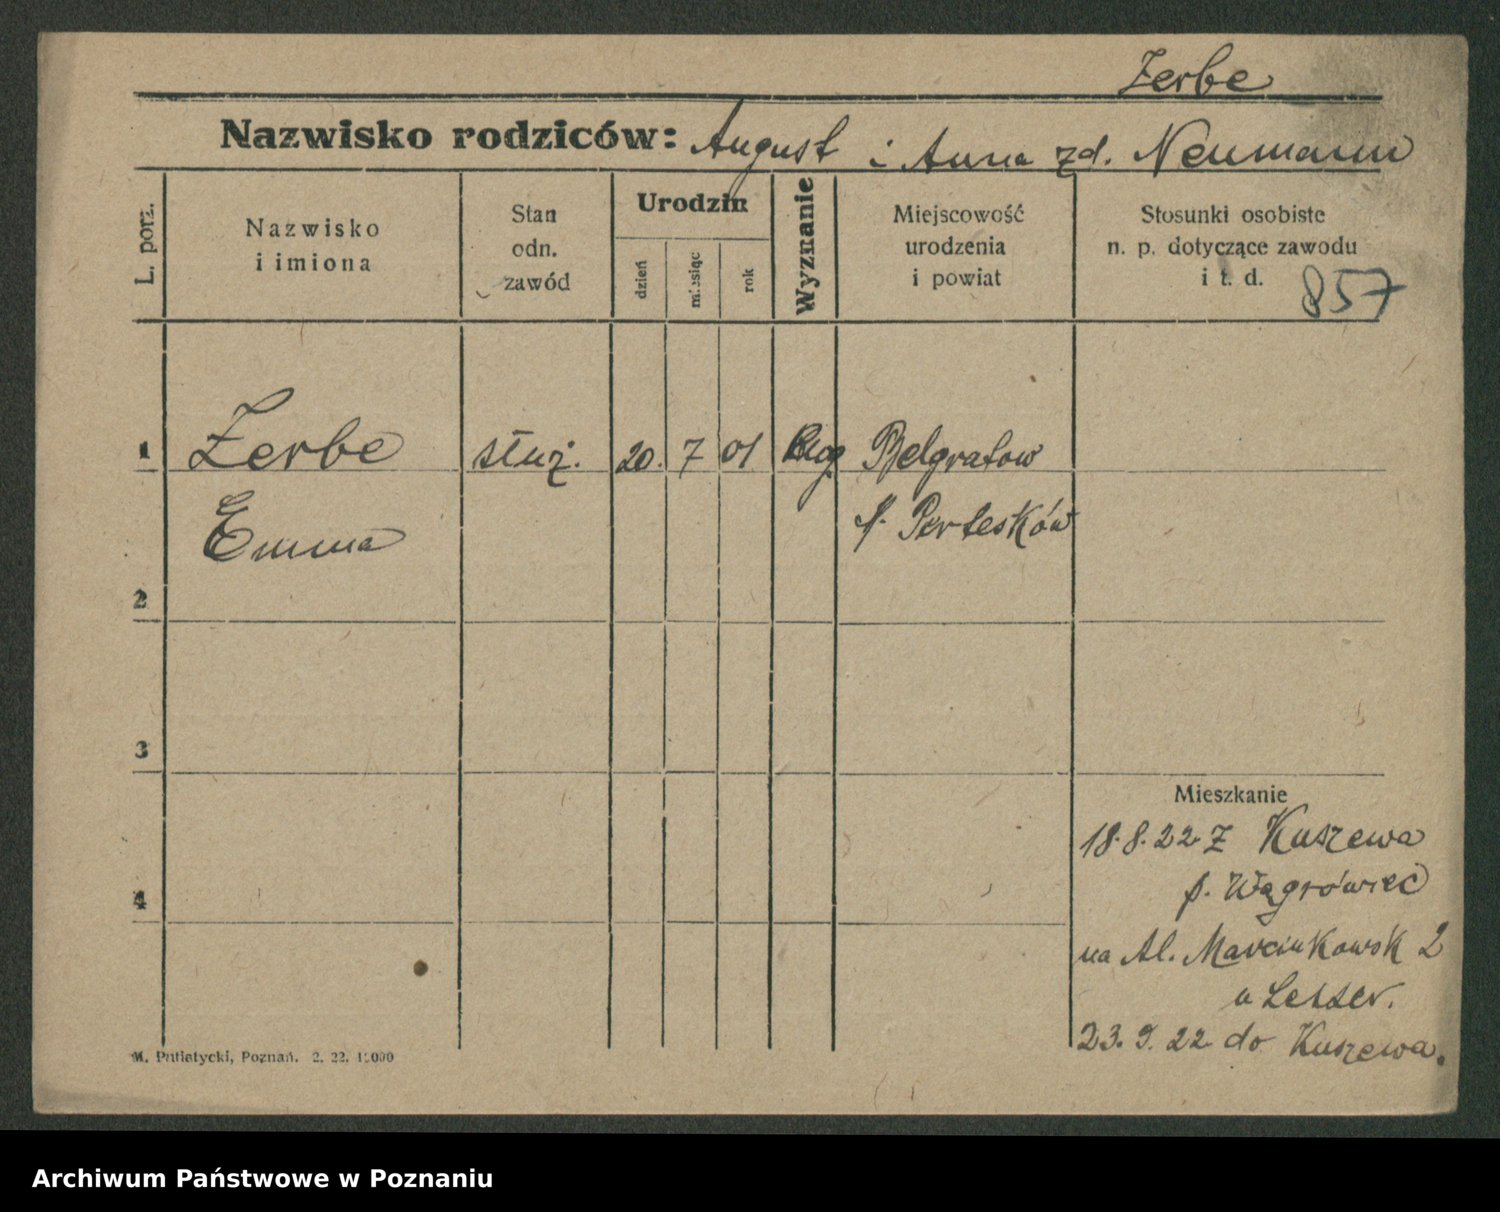 Zerbe
Nazwisko rodziców: August i Anna zd. Neumann
L. porz.
Nazwisko
i imiona
Stan
odn.
zawód
Urodzin
dzień
miesiąc
rok
Wyznanie
Miejscowość
urodzenia
i powiat
Stosunki osobiste
n. p. dotyczące zawodu
i t. d.
857
1 Zerbe służ. 20. 7 01 Belgratow
Emma p. Perlesków
2
3
4
Mieszkanie
18.8.22 Z Kuszewa
p. Wągrówiec
na Al. Marcinkowsk 2
u Lesser.
23. 9. 22 do Kuszewa.
M. Putiatycki, Poznań. 2. 22. 15000
Archiwum Państwowe w Poznaniu